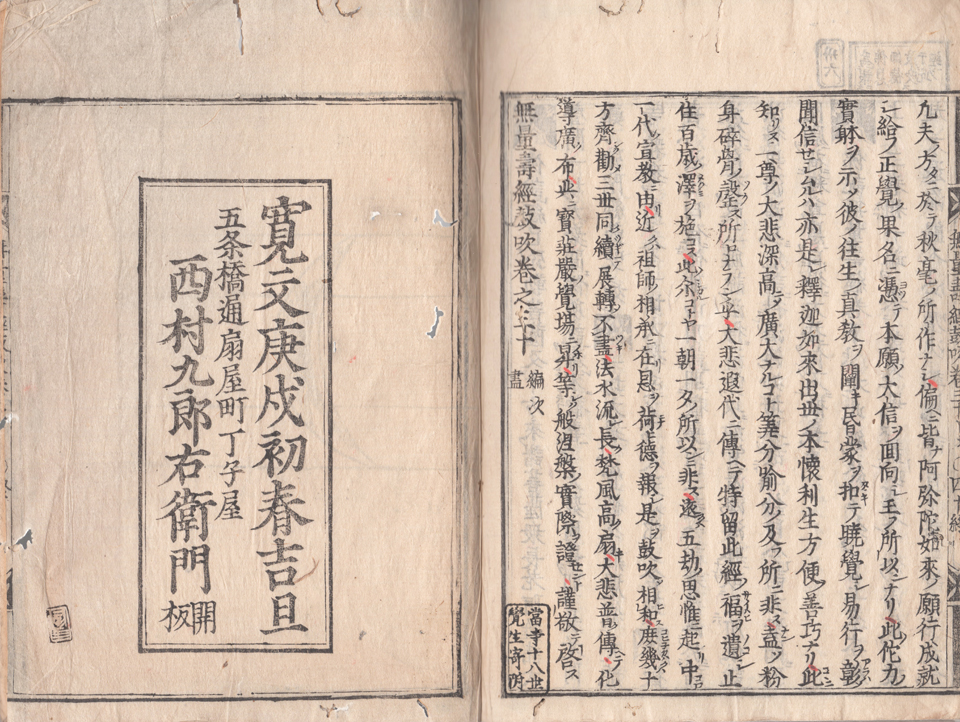 凢夫ノ方タニ於テ秋毫ノ所作ナシ偏ヘニ皆ナ阿弥陀如來ノ願行成就
シ給フ正覺ノ果名ニ憑テ本願ノ大信ヲ面向シ玉フ所以ンナリ此佗力
實躰ヲ示メ彼ノ往生ノ真教ヲ闡キ昏蒙ヲ扣テ曉覺シ易行ヲ彰
聞信セシ允ハ亦是レ釋迦如來出世ノ本懐利生方便ノ善巧ナリ此
知リヌ二尊ノ大悲深高ニ廣大ナルコト筭分喻分ノ及フ所ニ非ス盖シ粉
身碎骨ノ磬ス所ロナランヤ大悲遐代ニ傳ヘテ特留此經ノ福ヲ遺シ止
住百歳ノ澤ヲ施コス此尓コトヤ一朝一夕ノ所以ニ非ス遠ク五劫ノ思惟ニ起リ中コロ
一代ノ宣教ニ由リ近ク祖師ノ相承ニ在リ恩ヲ荷ヒ德ヲ報シ是ヲ鼓吹ノ相和ヒ庶幾ハ十
方齊ク勸メ三世同ク續キ展轉ノ不盡ノ法水流レ長ク梵風高ク扇キ大悲普傳ニテ化
導廣ク布此ニ寶莊嚴ノ覺場ニ昇リ等ク般涅槃ノ實際ヲ證センコト謹敬テ啓ス
無量壽經鼓吹卷之三十
編次
盡
當寺十八世
覺生寄附
卅六
寛文庚戌初春吉旦
五条橋通扇屋町丁子屋
西村九郎右衛門
開
板